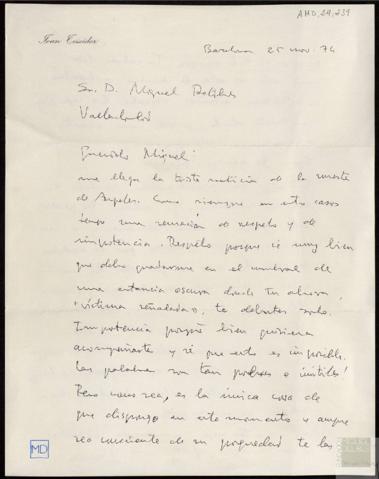 AMD, 29, 239
Joan Teixidor
Barcelona 25 nov. 74
Sr. D. Miguel Delibes
Valladolid
Querido Miguel
me llega la triste noticia de la muerte
de Angeles. Como siempre en estos casos
tengo una sensación de respeto y de
impotencia. Respeto porque sé muy bien
que debo quedarme en el umbral de
una estancia oscura donde tu ahora,
víctima señalada, te debates solo.
Impotencia porque bien quisiera
acompañarte y sé que esto es imposible.
Las palabras son tan pobres e inútiles!
Pero como sea, es la única cosa de
que dispongo en este momento y aunque
sea consciente de su poquedad te las
MD